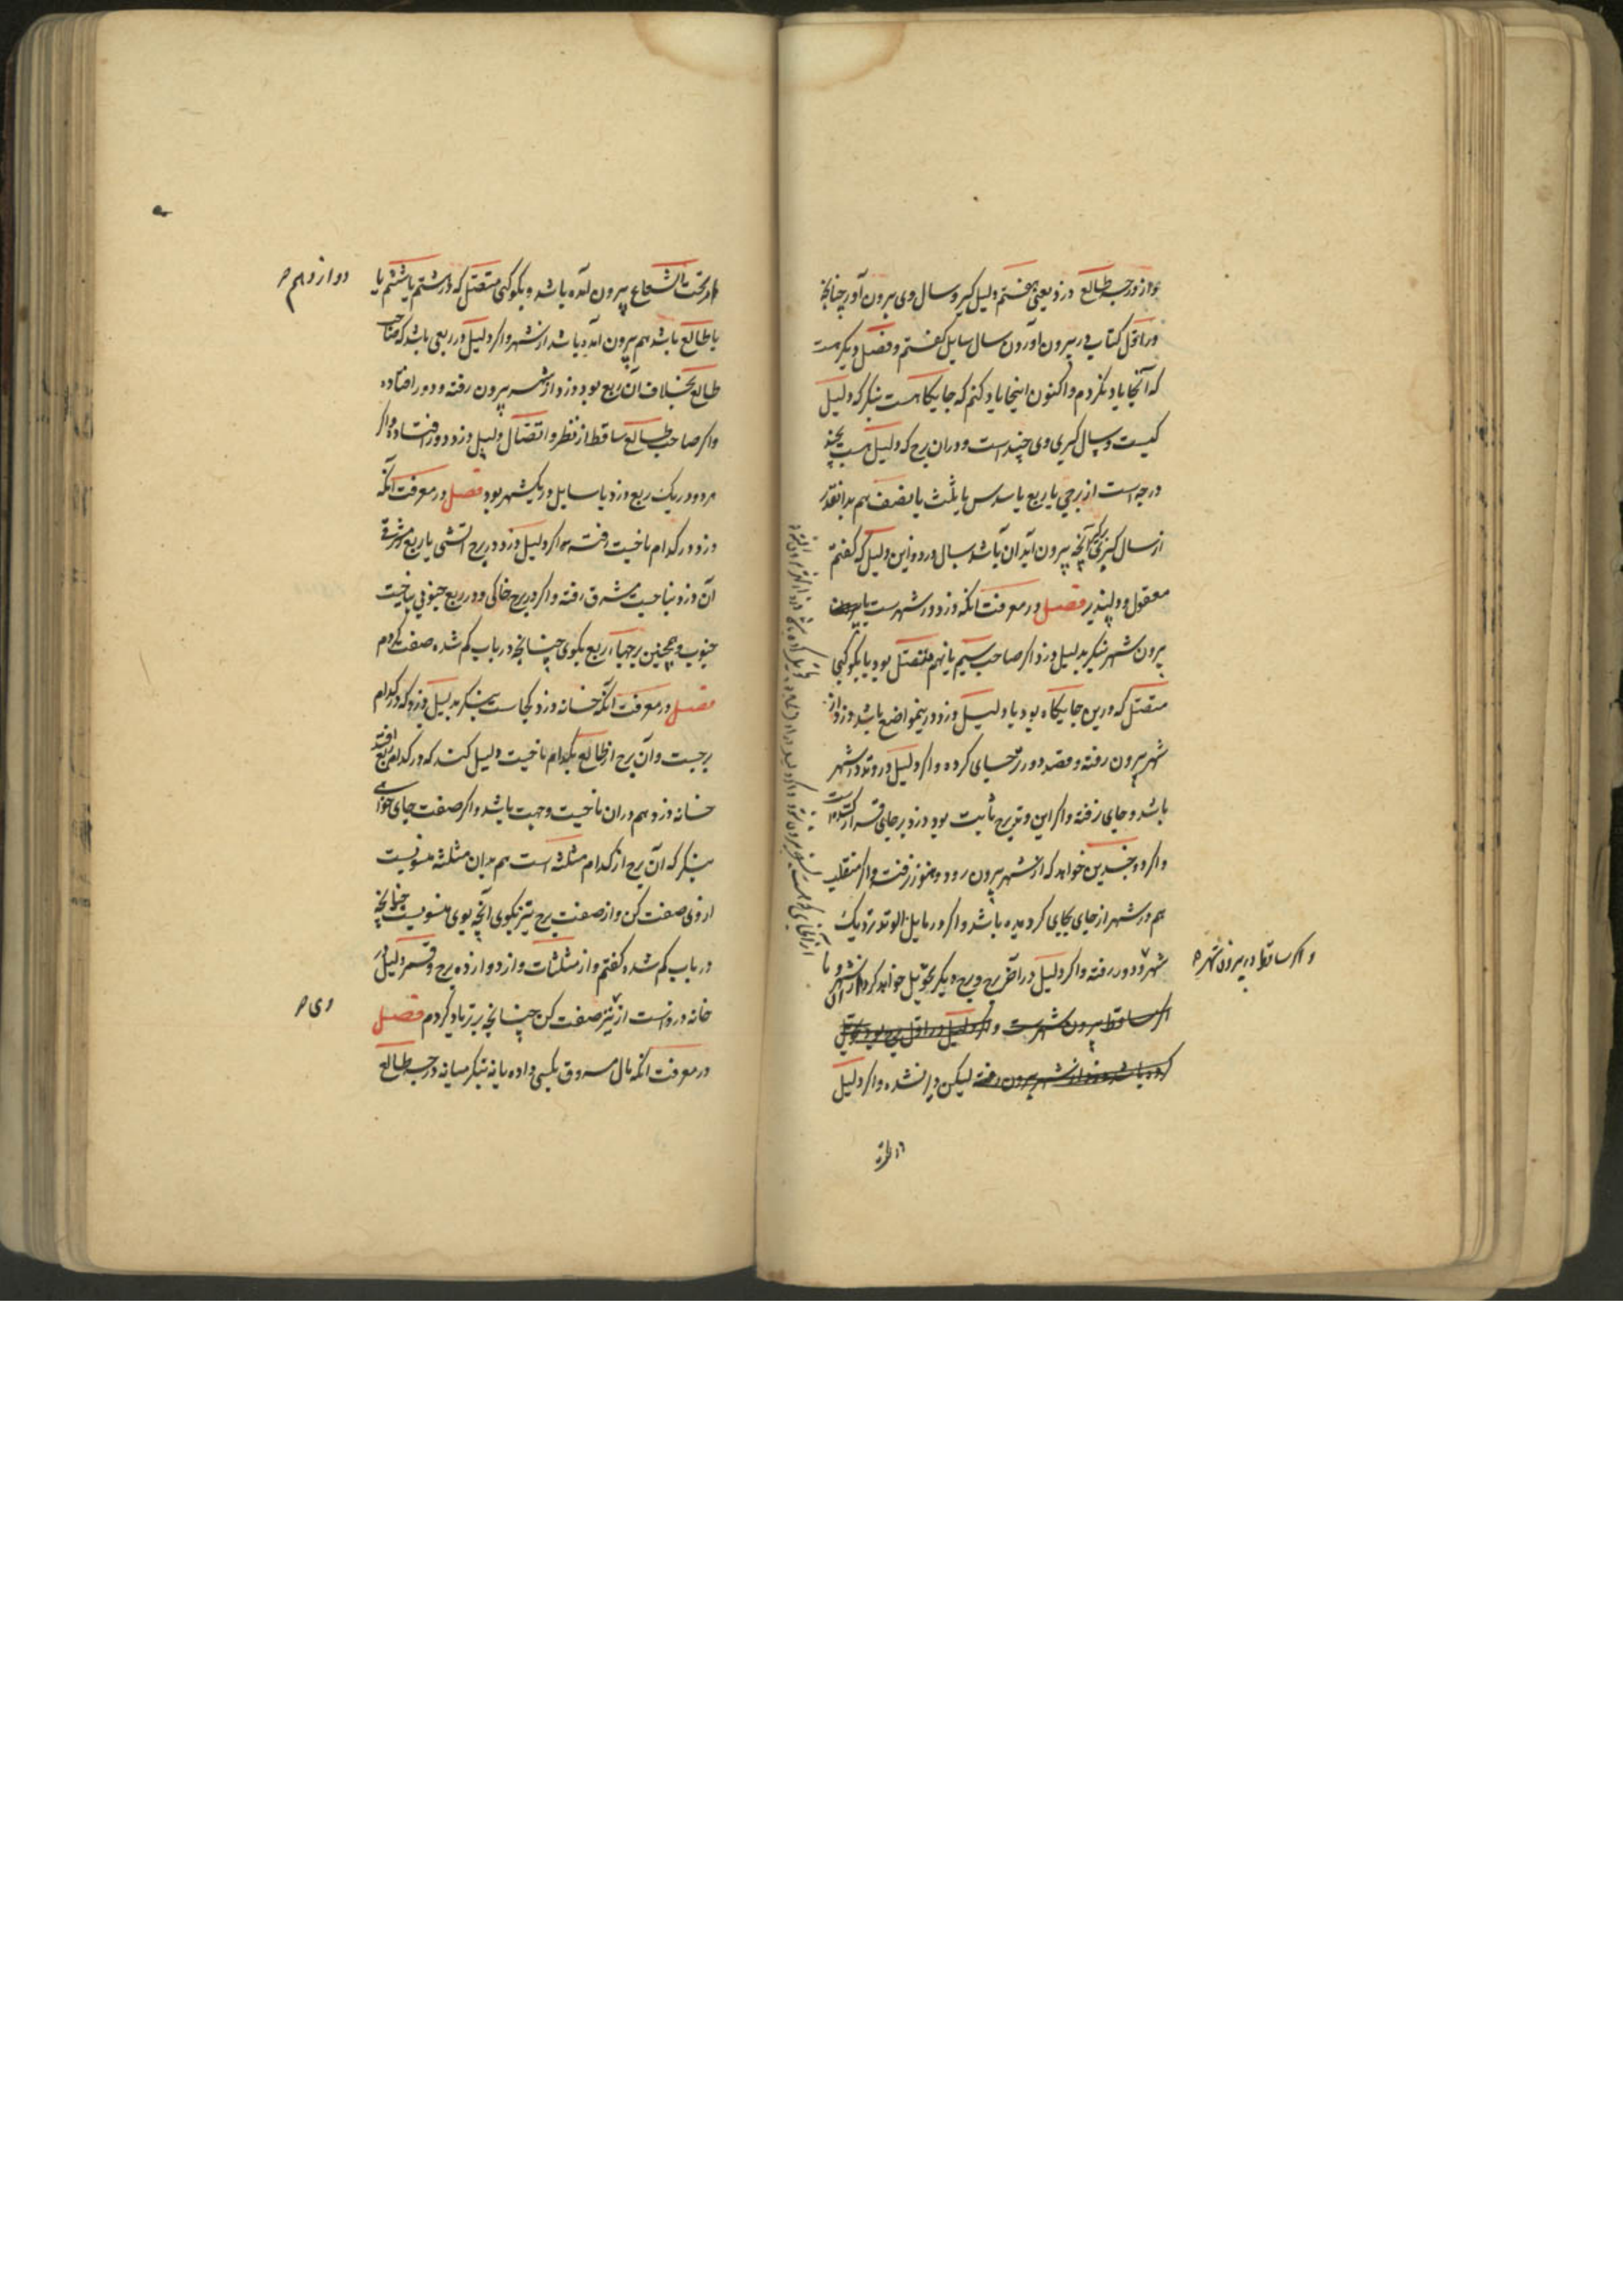 و از درجه طالع دزد یعنی هفتم دلیل گیر و سال وی بیرون آور چنانچه
در اول کتاب در بیرون آوردن سال سایل گفتم و فصل دیگر هست
که آنجا یاد نکردم و اکنون اینجا یاد کنم که جایگاهست بنگر که دلیل
کیست و سال کبری وی چند است و در آن برج که دلیل هست بچند
درجه است از برجی یا ربع یا سدس یا ثلث یا نصف هم بدانقدر
از سال کبری آنچه بیرون آید آن باشد سال دزد و این دلیل که گفتم
معقول و دلپذیر فصل در معرفت آنکه دزد در شهرست یا بیرون
بیرون شهر بنگر بدلیل دزد اگر صاحب سیم یا نهم متصل بود یا بکوکبی
متصل که درین جایگاه بود یا دلیل دزد درینمواضع باشد دزد از
شهر بیرون رفته و قصد دورتر جای کرده و اگر دلیل در وتد در شهر
باشد و جای نرفته و اگر این وتد برج ثابت بود دزد بر جای قرار گرفته است
و اگر ذو جسدین خواهد که از شهر بیرون رود و هنوز نرفت و اگر منقلب
هم در شهر از جای بجایی گردیده باشد و اگر در مایل الوتد نزدیک
شهر و دور رفته و اگر دلیل در آخر برج و برج دیگر تحویل خواهد کرد از شهر
و اگر ساقط در بیرون شهر
اگر ساقط بیرون شهرست و اگر دلیل در اول برج بود تحویل
کرده باشد دزد از شهر بیرون رفته لیکن دور نشده و اگر دلیل
از تحت الشعاع بیرون آمده باشد و بکوکبی متصل که در ششم یا هشتم یا
دوازدهم
با طالع باشد هم بیرون آمده باشد از شهر و اگر دلیل در ربعی باشد که صاحب
طالع بخلاف آن ربع بود دزد از شهر بیرون رفته و دور افتاده
و اگر صاحب طالع ساقط از نظر و اتصال دلیل دزد دور افتاده و اگر
هر دو در یک ربع دزد با سایل در یک شهر بود فصل در معرفت آنکه
دزد در کدام ناحیت رفته اگر دلیل دزد در برج آتشی یا ربع مشرقی
آن دزد بناحیت مشرق رفته و اگر در برج خاکی و در ربع جنوبی بناحیت
جنوب و همچنین برجها و ربع بگوی چنانچه در باب گم شده صفت کردم
فصل در معرفت آنکه خانه دزد کجاست بنگر بدلیل دزد که در کدام
برجست و آن برج از طالع بکدام ناحیت دلیل کند که در کدام ربع افتد
خانه دزد هم در آن ناحیت و جهت باشد و اگر صفت جای خواهی
بنگر که آن برج از کدام مثلثه است هم بدان مثلثه منسوبست
از وی صفت کن و از صفت برج نیز بگوی آنچه بوی منسوبست چنانچه
در باب گم شده گفتم و از مثلثات و از دوازده برج و قسم دلیل
خانه دروست از نیز صفت کن چنانچه برتر یاد کردم فصل
وی
در معرفت آنکه مال مسروق بکسی داده یا نه بنگر میانه درجه طالع